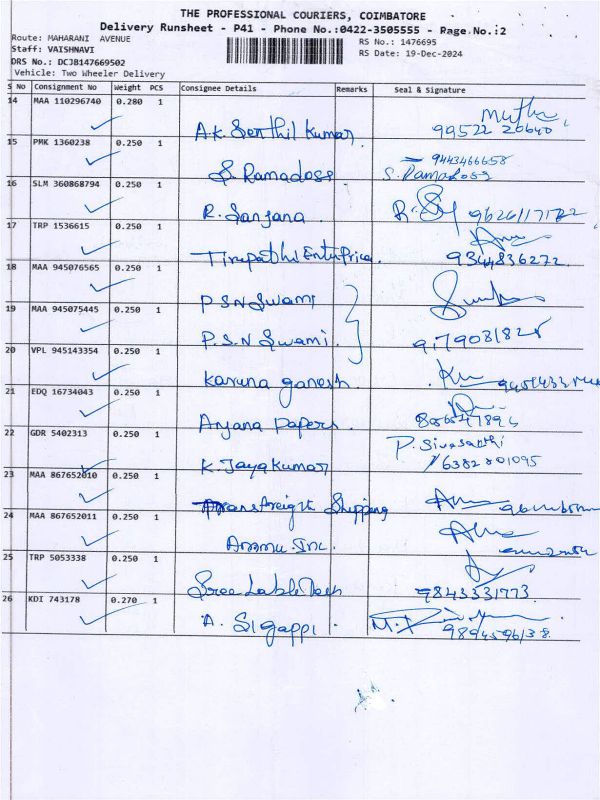 THE PROFESSIONAL COURIERS, COIMBATORE
Delivery Runsheet - P41 - Phone No.:0422-3505555 - Page No.:2
Route: MAHARANI AVENUE
RS No.: 1476695
Staff: VAISHNAVI
RS Date: 19-Dec-2024
DRS No.: DCJ8147669502
Vehicle: Two Wheeler Delivery
S No Consignment No Weight PCS Consignee Details Remarks Seal & Signature
14 MAA 110296740 0.280 1
A.K. Senthil Kumar
99522 20640
15 PMK 1360238 0.250 1
S. Ramadoss
9443466658
S. Ramadoss
16 SLM 360868794 0.250 1
R. Sanjana
9626117172
17 TRP 1536615 0.250 1
Tirupathi Enterprices
9344836272
18 MAA 945076565 0.250 1
P S N Swami
19 MAA 945075445 0.250 1
P.S.N Swami
20 VPL 945143354 0.250 1
Karuna ganesh
21 EDQ 16734043 0.250 1
Anjana Papers
22 GDR 5402313 0.250 1
K. Jayakumar
P. Sivasakthi
6382801095
23 MAA 867652010 0.250 1
Transfreight Shipping
24 MAA 867652011 0.250 1
Ammu Inc.
25 TRP 5053338 0.250 1
Sree Lable Tech
9843331773
26 KDI 743178 0.270 1
A. Sigappi